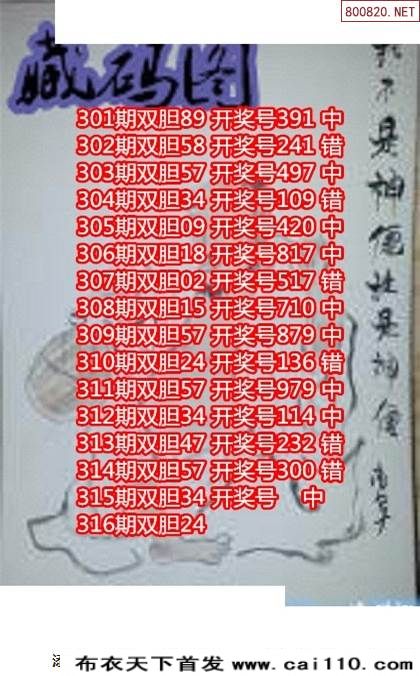 800820.NET
藏码图
301期双胆89 开奖号391 中
302期双胆58 开奖号241 错
303期双胆57 开奖号497 中
304期双胆34 开奖号109 错
305期双胆09 开奖号420 中
306期双胆18 开奖号817 中
307期双胆02 开奖号517 错
308期双胆15 开奖号710 中
309期双胆57 开奖号879 中
310期双胆24 开奖号136 错
311期双胆57 开奖号979 中
312期双胆34 开奖号114 中
313期双胆47 开奖号232 错
314期双胆57 开奖号300 错
315期双胆34 开奖号 中
316期双胆24
我不是神僊
是神僊
布衣天下首发 www.cai110.com